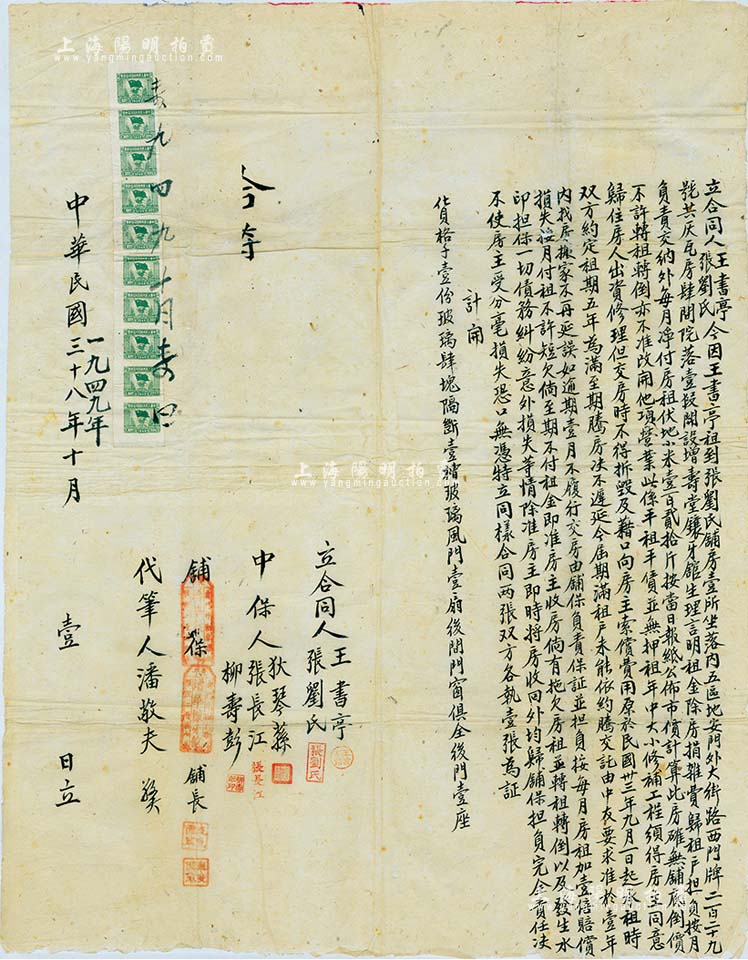 立合同人王書亭張劉氏今因王書亭租到張劉氏鋪房壹所坐落內五區地安門外大街路西門牌二百二十九
號共灰瓦房肆間院落壹段開設增壽堂鑲牙館生理言明租金除房捐雜費歸租戶担負按月
負責交納外每月凈付房租伏地小米壹百貳拾斤按當日報紙公佈市價計算此房確無鋪底倒價
不許轉租轉倒亦不准改開他項營業此係平租平價並無押租年中大小修補工程須得房主同意
歸住房人出資修理但交房時不得拆毀及藉口向房主索償費用原於民國卅三年九月一日起承租時
双方約定租期五年為滿至期騰房決不遲延今屆期滿租戶未能依約騰交託由中友要求准於壹年
內找房搬家不再延誤如逾期壹月不履行交房由鋪保負責保証並担負按每月房租加壹倍賠償
損失按月付租不許短欠倘至期不付租金即准房主收房倘有拖欠房租並轉租轉倒以及發生水
印担保一切債務糾紛意外損失等情除准房主即時將房收回外均歸鋪保担負完全責任決
不使房主受分毫損失恐口無憑特立同樣合同兩張双方各執壹張為証
計開
貨格子壹份玻璃肆塊隔斷壹槽玻璃風門壹扇後閒門窗俱全後門壹座
立合同人王書亭
張劉氏
張劉氏
中保人狄琴蓀
張長江
張長江
柳壽彭
鋪保
鋪長
代筆人潘敬夫
中華民國三十八年十月壹日立
一九四九年
壹九四九十月壹日
上海陽明拍賣
www.yangmingauction.com
上海陽明拍賣
www.yangmingauction.com